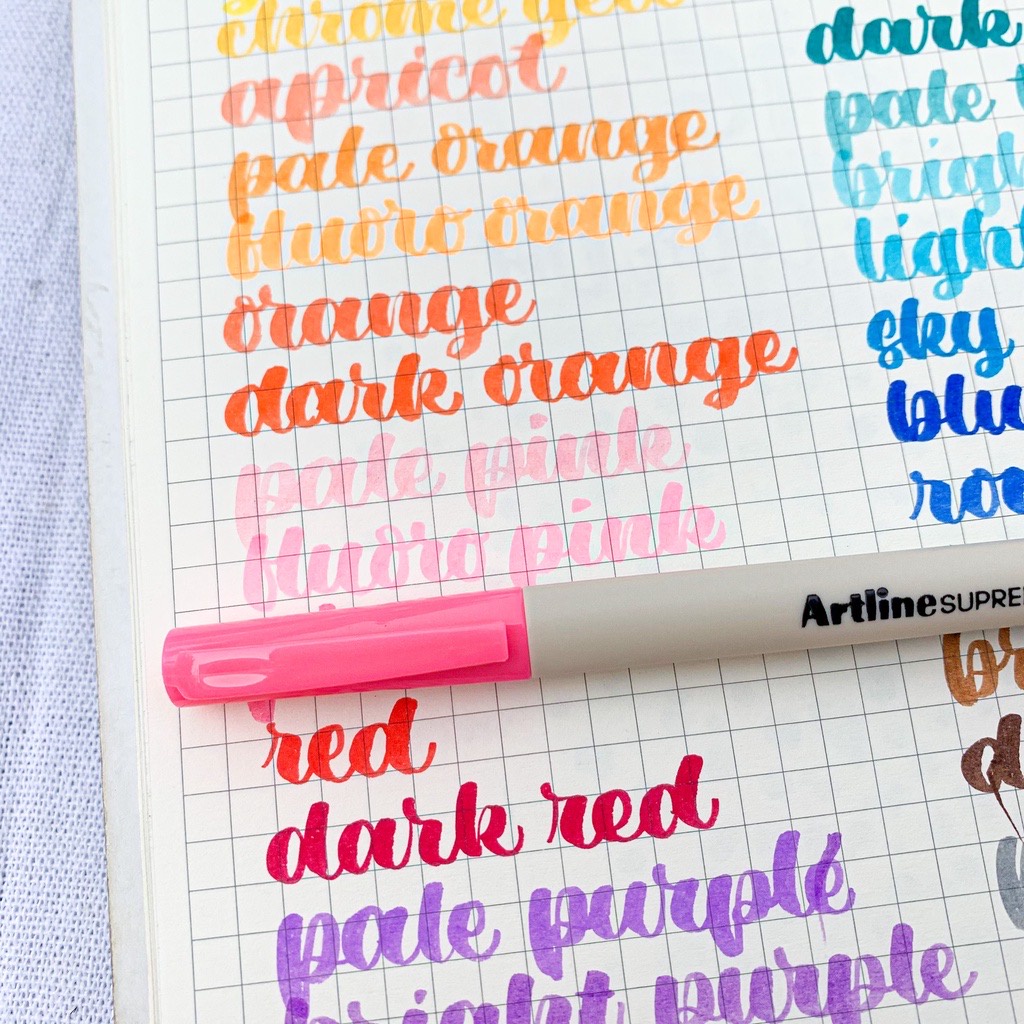 chrome
apricot
pale orange
fluoro orange
orange
dark orange
pale pink
fluoro pink
red
dark red
pale purple
bright purple
dark
pale
sky
Artline SUPRE